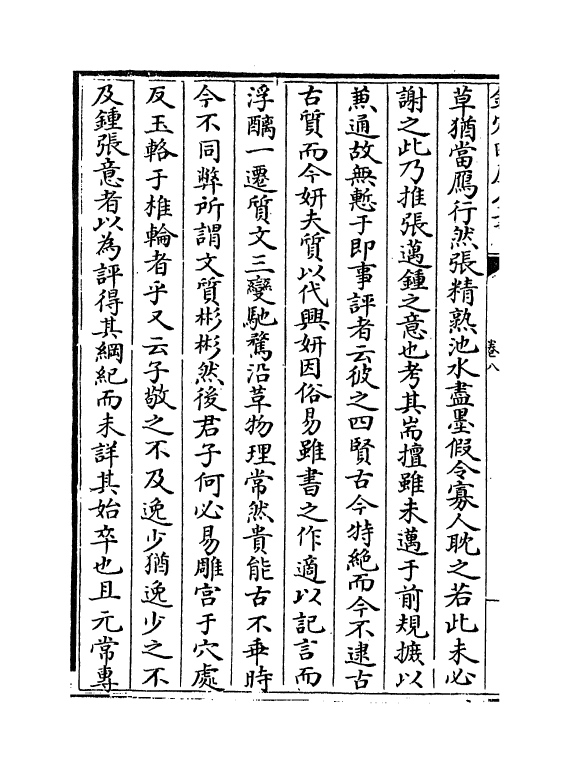 卷八
草猶當鴈行然張精熟池水盡墨假令寡人耽之若此未必
謝之此乃推張邁鍾之意也考其耑擅雖未邁于前規摭以
蒹通故無慙于即事評者云彼之四賢古今特絶而今不逮古
古質而今妍夫質以代興妍因俗易雖書之作適以記言而
浮醨一遷質文三變馳騖沿革物理常然貴能古不乖時
今不同弊所謂文質彬彬然後君子何必易雕宮于穴處
反玉輅于椎輪者乎又云子敬之不及逸少猶逸少之不
及鍾張意者以為評得其綱紀而未詳其始卒也且元常專